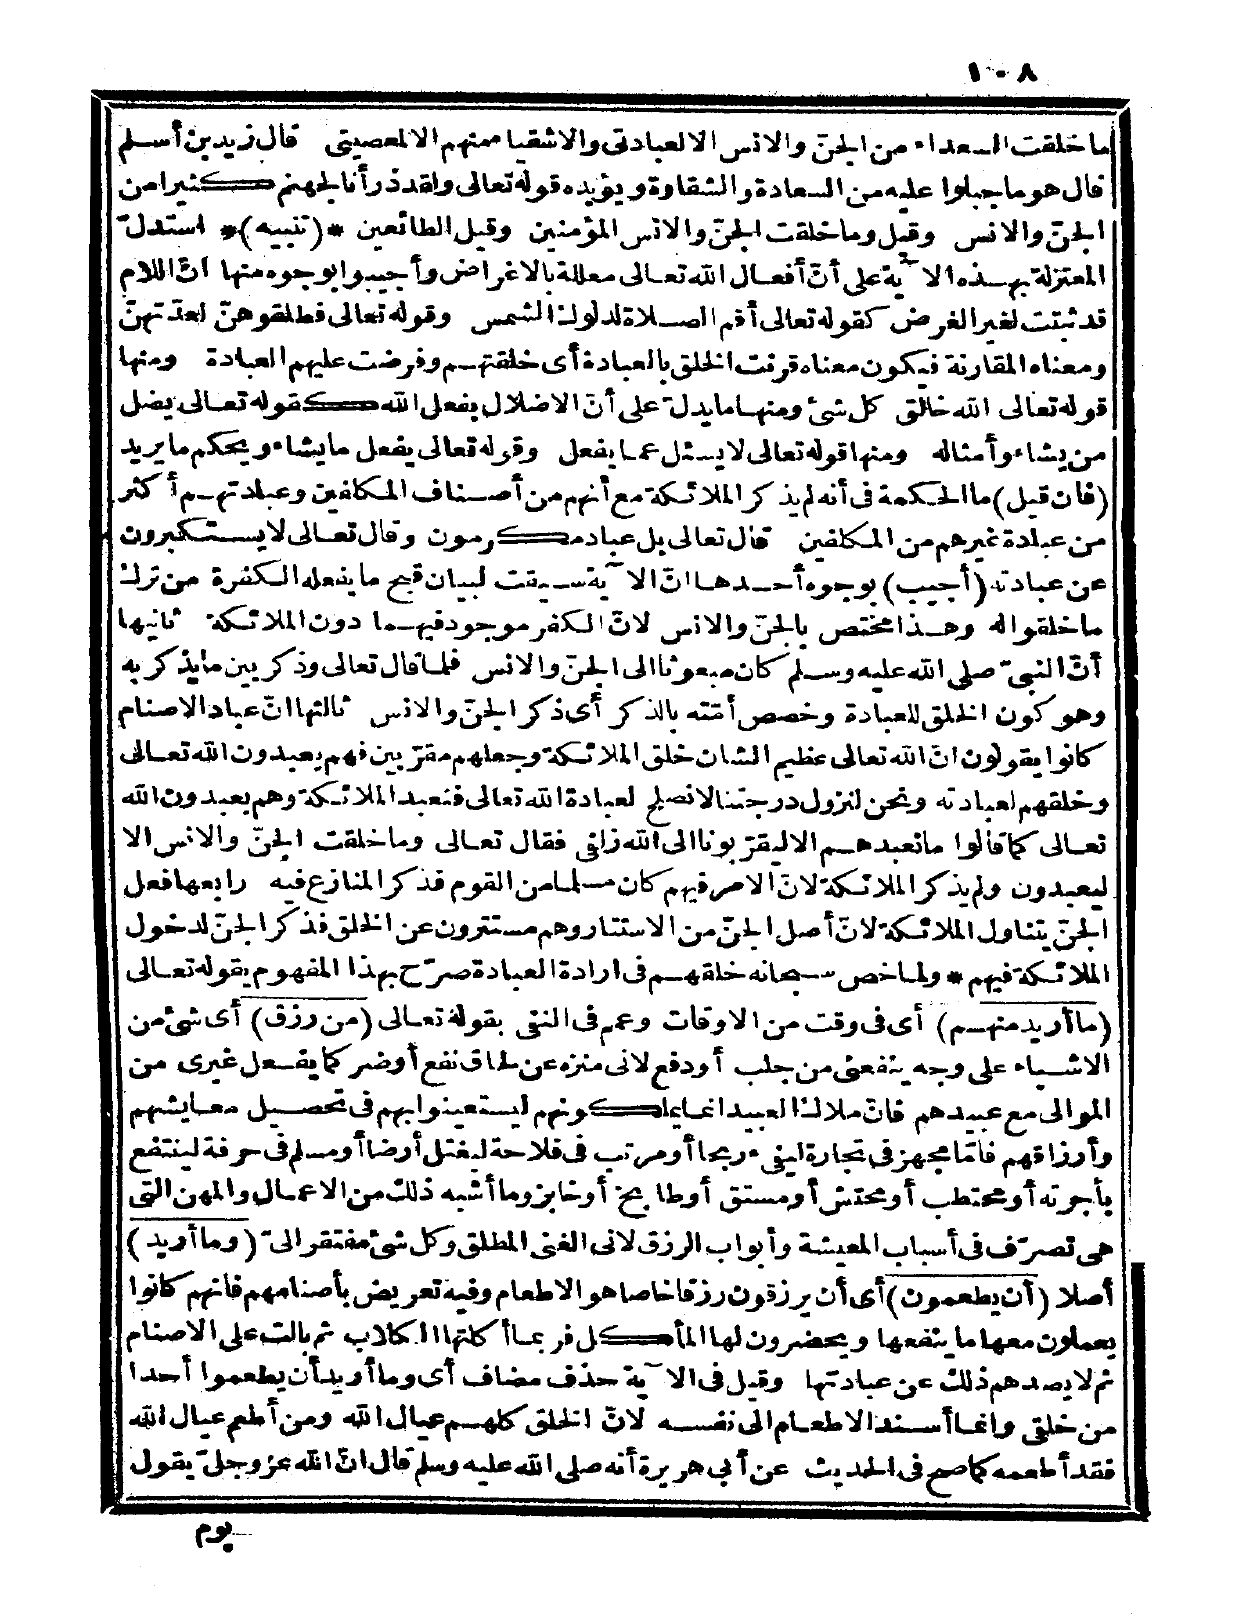 ١٠٨
ما خلقت السعداء من الجنّ والانس الا لعبادتى والاشقياء منهم الا لمعصيتى قال زيد بن أسلم
قال هو ما جبلوا عليه من السعادة والشقاوة ويؤيده قوله تعالى ولقد ذرأنا لجهنم كثيرا من
الجنّ والانس وقيل وما خلقت الجنّ والانس المؤمنين وقيل الطائعين * (تنبيه) * استدلّ
المعتزلة بهذه الآية على أنّ أفعال الله تعالى معللة بالاغراض وأجيبوا بوجوه منها انّ اللام
قد ثبتت لغير الغرض كقوله تعالى أقم الصلاة لدلوك الشمس وقوله تعالى فطلقوهنّ لعدّتهنّ
ومعناه المقارنة فيكون معناه قرنت الخلق بالعبادة أى خلقتهم وفرضت عليهم العبادة ومنها
قوله تعالى الله خالق كل شئ ومنها ما يدلّ على أنّ الاضلال بفعل الله كقوله تعالى يضل
من يشاء وأمثاله ومنها قوله تعالى لا يسئل عما يفعل وقوله تعالى يفعل ما يشاء ويحكم ما يريد
(فان قيل) ما الحكمة فى أنه لم يذكر الملائكة مع أنهم من أصناف المكلفين وعبادتهم أكثر
من عبادة غيرهم من المكلفين قال تعالى بل عباد مكرمون وقال تعالى لا يستكبرون
عن عبادته (أجيب) بوجوه أحدها انّ الآية سيقت لبيان قبح ما يفعله الكفرة من ترك
ما خلقوا له وهذا مختص بالجنّ والانس لانّ الكفر موجود فيهما دون الملائكة ثانيها
أنّ النبىّ صلى الله عليه وسلم كان مبعوثا الى الجنّ والانس فلما قال تعالى وذكر بين ما يذكر به
وهو كون الخلق للعبادة وخصص أمّته بالذكر أى ذكر الجنّ والانس ثالثها انّ عباد الاصنام
كانوا يقولون انّ الله تعالى عظيم الشان خلق الملائكة وجعلهم مقرّبين فهم يعبدون الله تعالى
وخلقهم لعبادته ونحن لنزول درجتنا لا نصلح لعبادة الله تعالى فنعبد الملائكة وهم يعبدون الله
تعالى كما قالوا ما نعبدهم الا ليقرّبونا الى الله زلفى فقال تعالى وما خلقت الجنّ والانس الا
ليعبدون ولم يذكر الملائكة لانّ الامر فيهم كان مسلما من القوم فذكر المنازع فيه رابعها فعل
الجنّ يتناول الملائكة لانّ أصل الجنّ من الاستتار وهم مستترون عن الخلق فذكر الجنّ لدخول
الملائكة فيهم * ولما خص سبحانه خلقهم فى ارادة العبادة صرّح بهذا المفهوم بقوله تعالى
(ما أريد منهم) أى فى وقت من الاوقات وعمم فى النفى بقوله تعالى (من رزق) أى شئ من
الاشياء على وجه ينفعنى من جلب أو دفع لانى منزه عن لحاق نفع أو ضر كما يفعل غيرى من
الموالى مع عبيدهم فانّ ملاك العبيد انما يملكونهم ليستعينوا بهم فى تحصيل معايشهم
وأرزاقهم فامّا مجهز فى تجارة ليفىء ربحا أو مرتب فى فلاحة ليغتل أرضا أو مسلم فى حرفة لينتفع
بأجرته أو محتطب أو محتش أو مستق أو طابخ أو خابز وما أشبه ذلك من الاعمال والمهن التى
هى تصرّف فى أسباب المعيشة وأبواب الرزق لانى الغنى المطلق وكل شئ مفتقر الىّ (وما أريد)
أصلا (أن يطعمون) أى أن يرزقون رزقا خاصا هو الاطعام وفيه تعريض بأصنامهم فانهم كانوا
يعملون معها ما ينفعها ويحضرون لها المأكل فربما أكلتها الكلاب ثم بالت على الاصنام
ثم لا يصدهم ذلك عن عبادتها وقيل فى الآية حذف مضاف أى وما أريد أن يطعموا أحدا
من خلقى وانما أسند الاطعام الى نفسه لانّ الخلق كلهم عيال الله ومن أطعم عيال الله
فقد أطعمه كما صح فى الحديث عن أبى هريرة أنه صلى الله عليه وسلم قال انّ الله عز وجلّ يقول
يوم